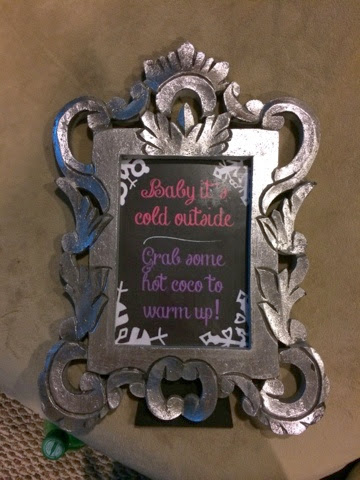 Baby it's
cold outside
Grab some
hot coco to
warm up!